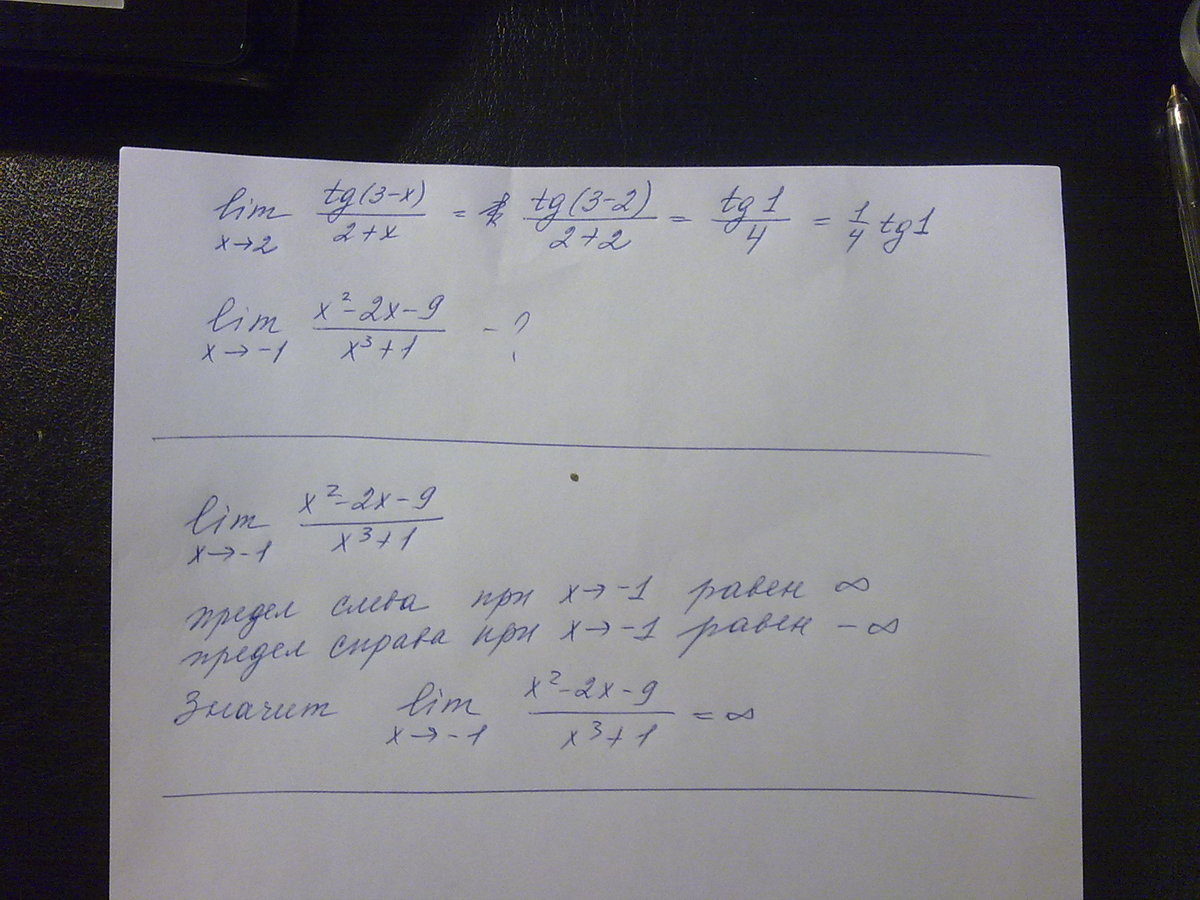 lim x→2 tg(3-x)/(2+x) = tg(3-2)/(2+2) = tg1/4 = 1/4 tg1
lim x→-1 (x²-2x-9)/(x³+1) - ?
lim x→-1 (x²-2x-9)/(x³+1)
предел слева при x→-1 равен ∞
предел справа при x→-1 равен -∞
Значит lim x→-1 (x²-2x-9)/(x³+1) = ∞